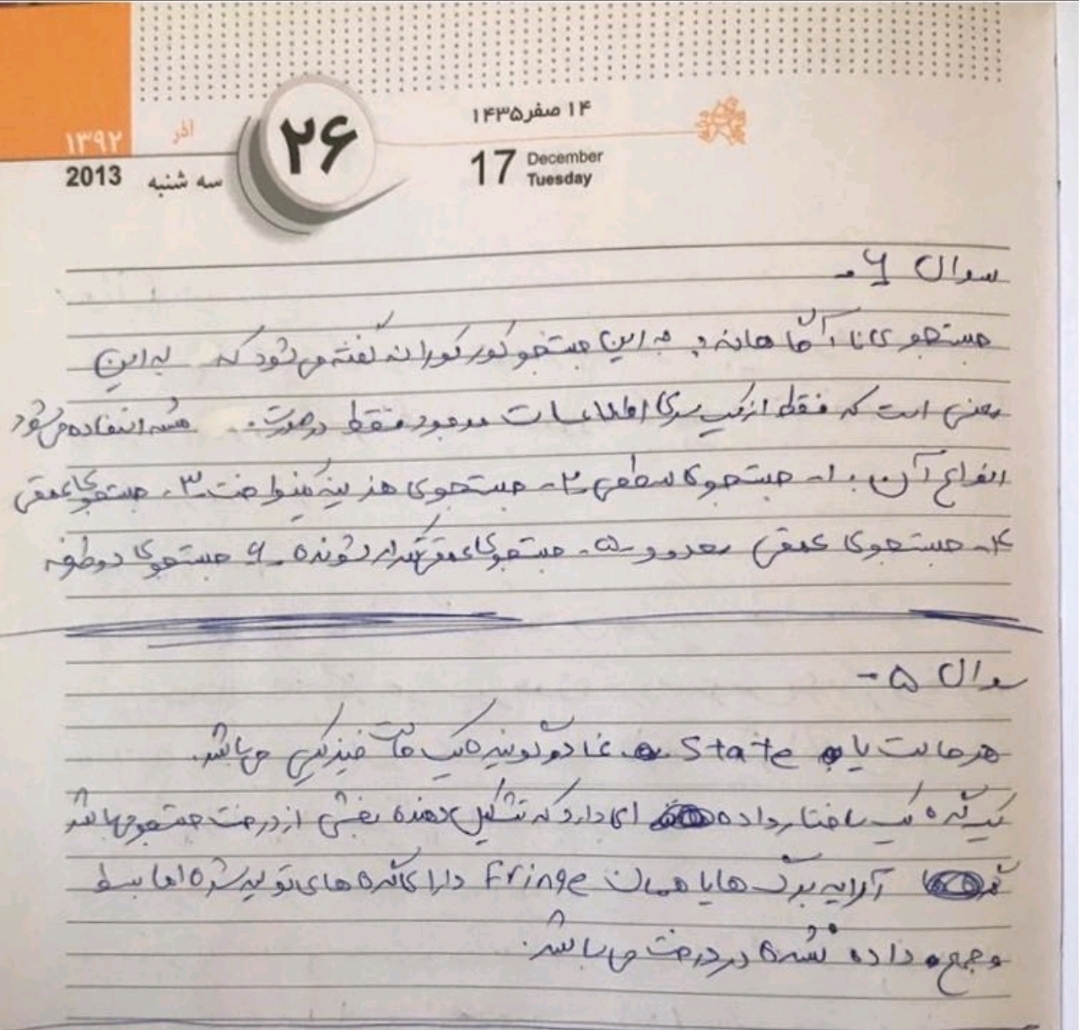 ۱۳۹۲ آذر ۲۶ ۱۴ صفر ۱۴۳۵
2013 سه شنبه 17 December Tuesday
سوال ۶-
جستجوی نا آگاهانه: به این جستجو کورکورانه گفته می‌شود که به این
معنی است که فقط از یک سری اطلاعات موجود فقط در صورت مسئله استفاده می‌شود
انواع آن: ۱- جستجوی سطحی ۲- جستجوی هزینه یکنواخت ۳- جستجوی عمقی
۴- جستجوی عمقی محدود ۵- جستجوی عمقی تکرار شونده ۶- جستجوی دوطرفه
سوال ۵-
هر حالت یا State نمادگونه یک حالت فیزیکی می‌باشد.
یک گره یک ساختار داده ای دارد که تشکیل دهنده بخشی از درخت جستجو می‌باشد
آرایه برگ ها یا همان Fringe دارای گره های تولید شده اما بسط
و جمع داده نشده در درخت می‌باشد.